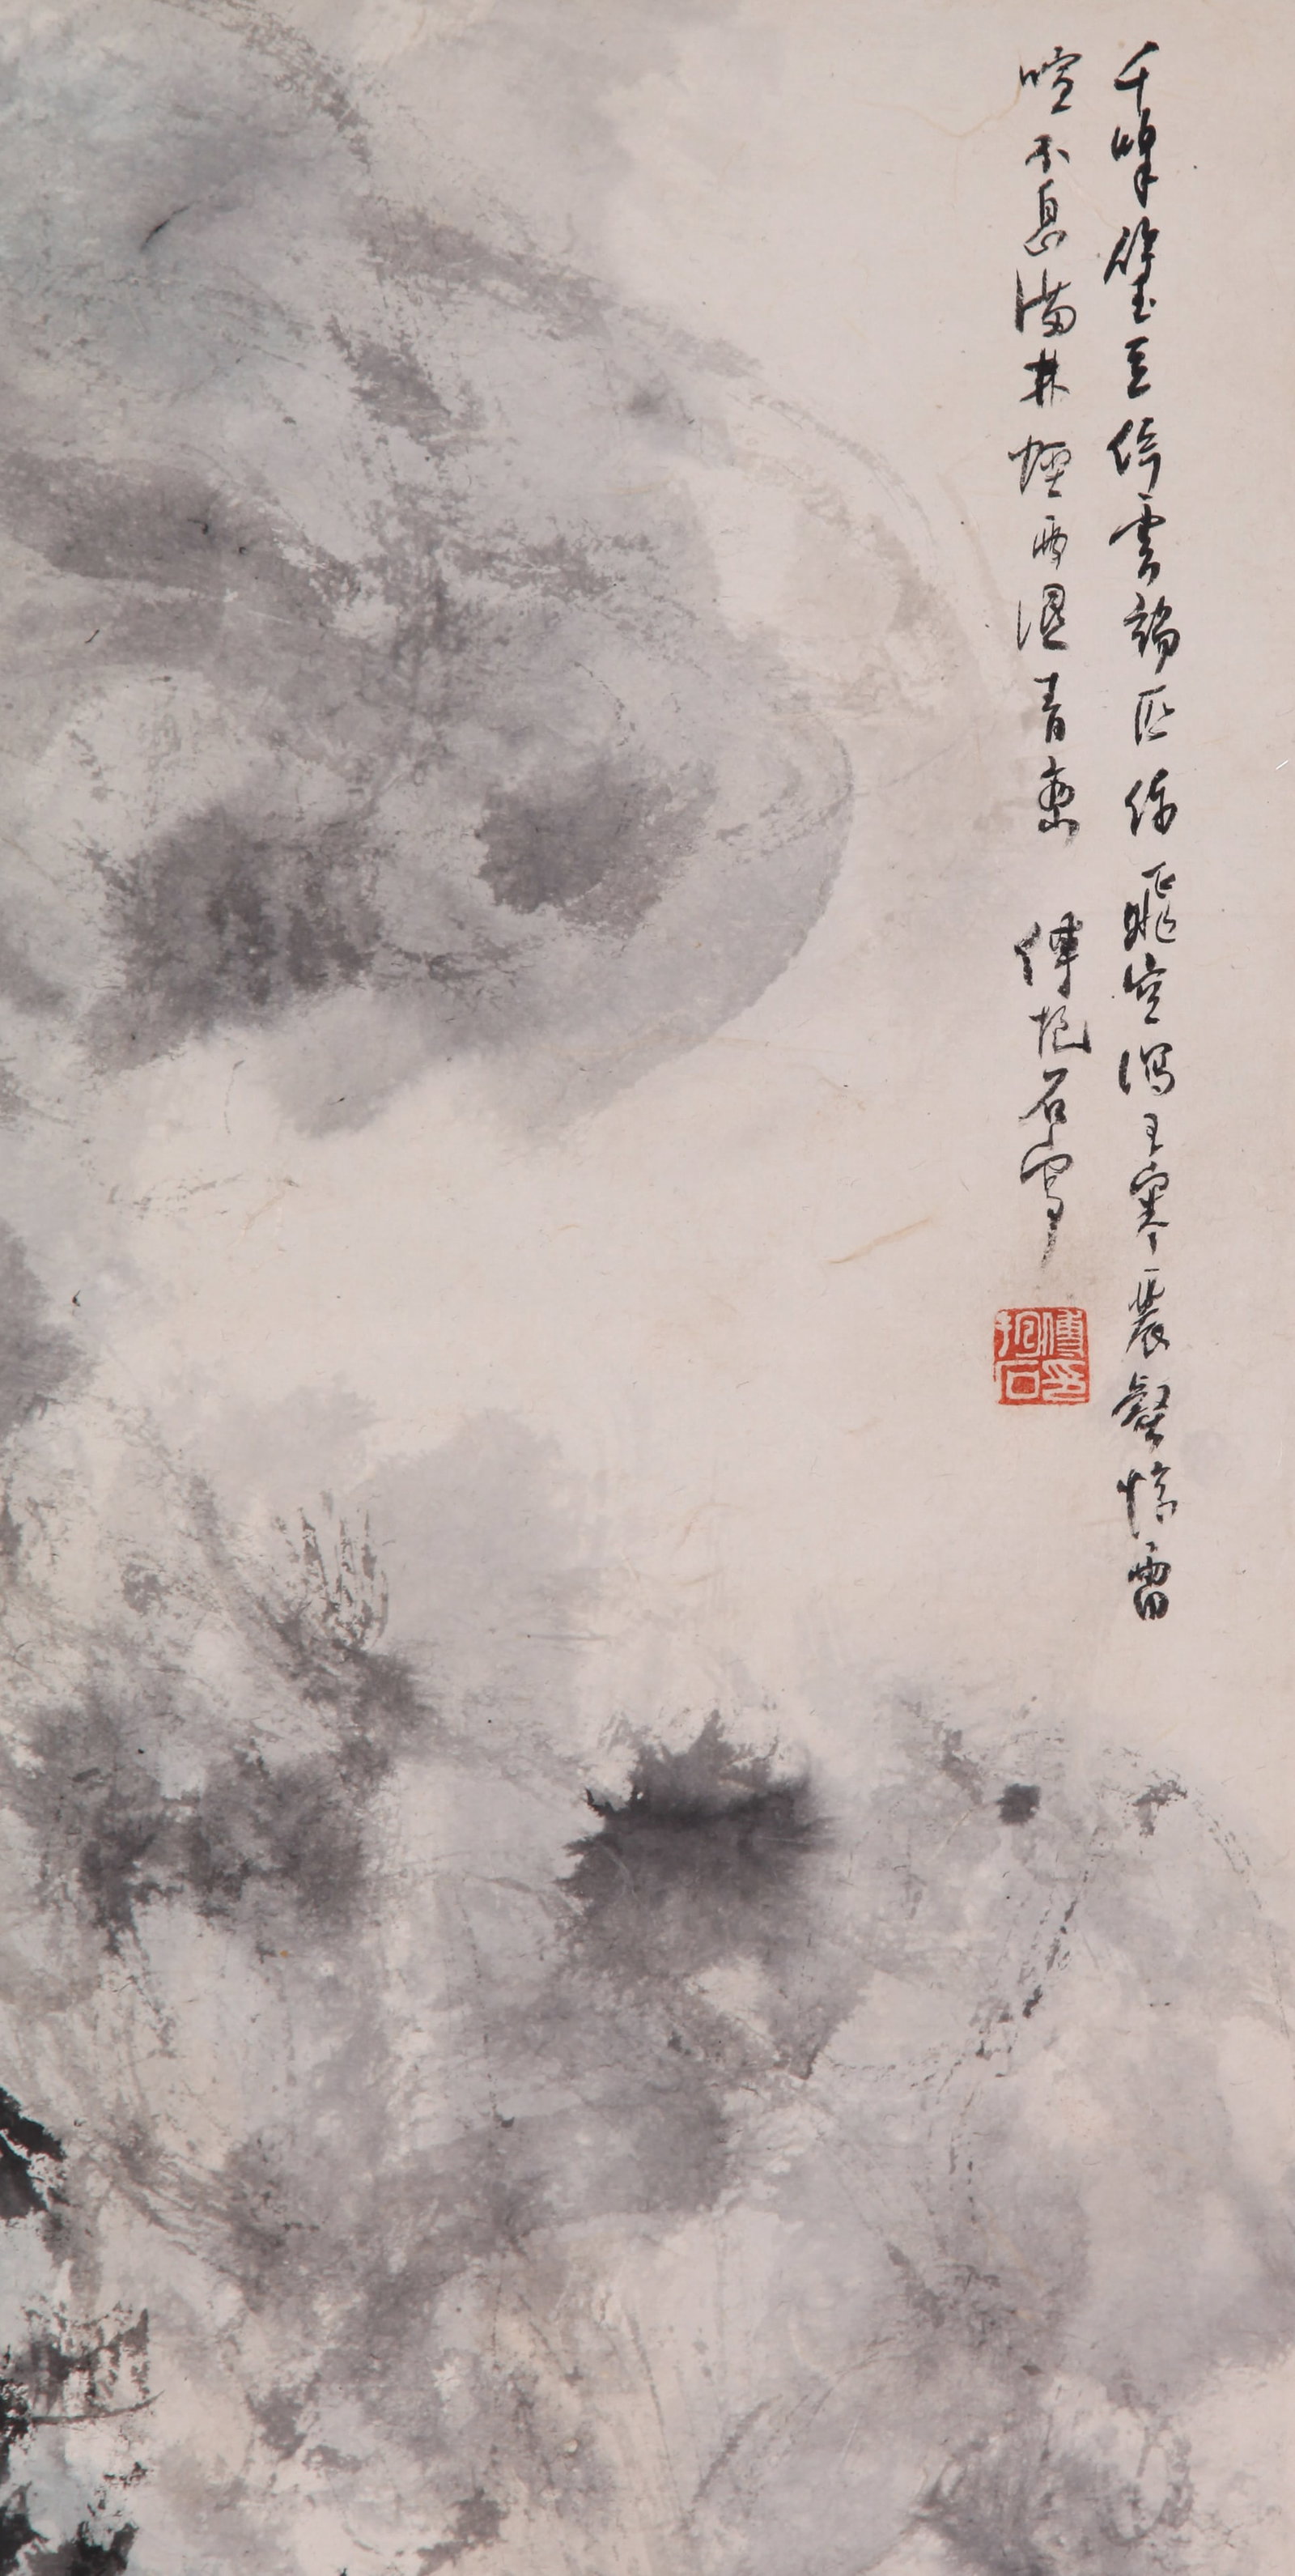 千峰筆立倚雲端匹練飛空瀉玉寒震壑驚雷
喧不息滿林煙雨濕青巒 傅抱石寫
傅印抱石